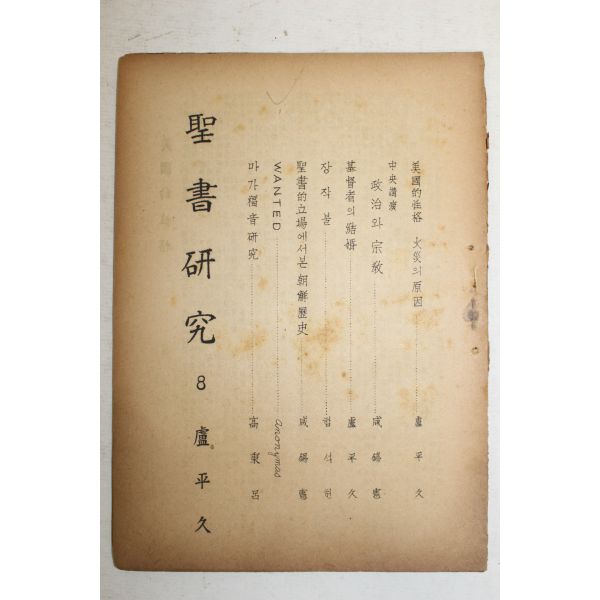 美國的性格 火災의原因 盧平久
中央
政治와 宗敎 咸錫憲
基督者의結婚 盧平久
장작불 함석헌
聖書的立場에서본 朝鮮歷史 咸錫憲
WANTED anonymas
마가福音研究 高東呂
聖書研究 8 盧平久